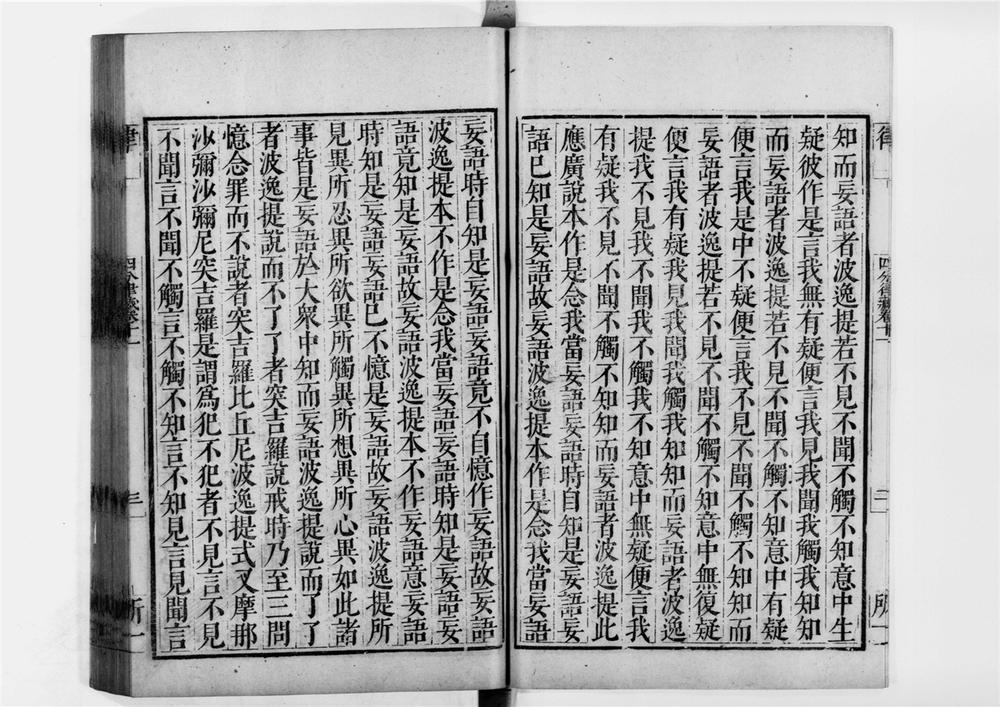 律
四分律藏卷十一
二
所一
知而妄語者波逸提若不見不聞不觸不知意中生
疑彼作是言我無有疑便言我見我聞我觸我知知
而妄語者波逸提若不見不聞不觸不知意中有疑
便言我是中不疑便言我不見不聞不觸不知知而
妄語者波逸提若不見不聞不觸不知意中無復疑
便言我有疑我見我聞我觸我知知而妄語者波逸
提我不見我不聞我不觸我不知意中無疑便言我
有疑我不見不聞不觸不知知而妄語者波逸提此
應廣說本作是念我當妄語妄語時自知是妄語妄
語已知是妄語故妄語波逸提本作是念我當妄語
妄語時自知是妄語妄語竟不自憶作妄語故妄語
波逸提本不作是念我當妄語妄語時知是妄語妄
語竟知是妄語故妄語波逸提本不作妄語意妄語
時知是妄語妄語已不憶是妄語故妄語波逸提所
見異所忍異所欲異所觸異所想異所心異如此諸
事皆是妄語於大眾中知而妄語波逸提說而了了
者波逸提說而不了了者突吉羅說戒時乃至三問
憶念罪而不說者突吉羅比丘尼波逸提式叉摩那
沙彌沙彌尼突吉羅是謂爲犯不犯者不見言不見
不聞言不聞不觸言不觸不知言不知見言見聞言
律
四分律藏卷十一
三
所一